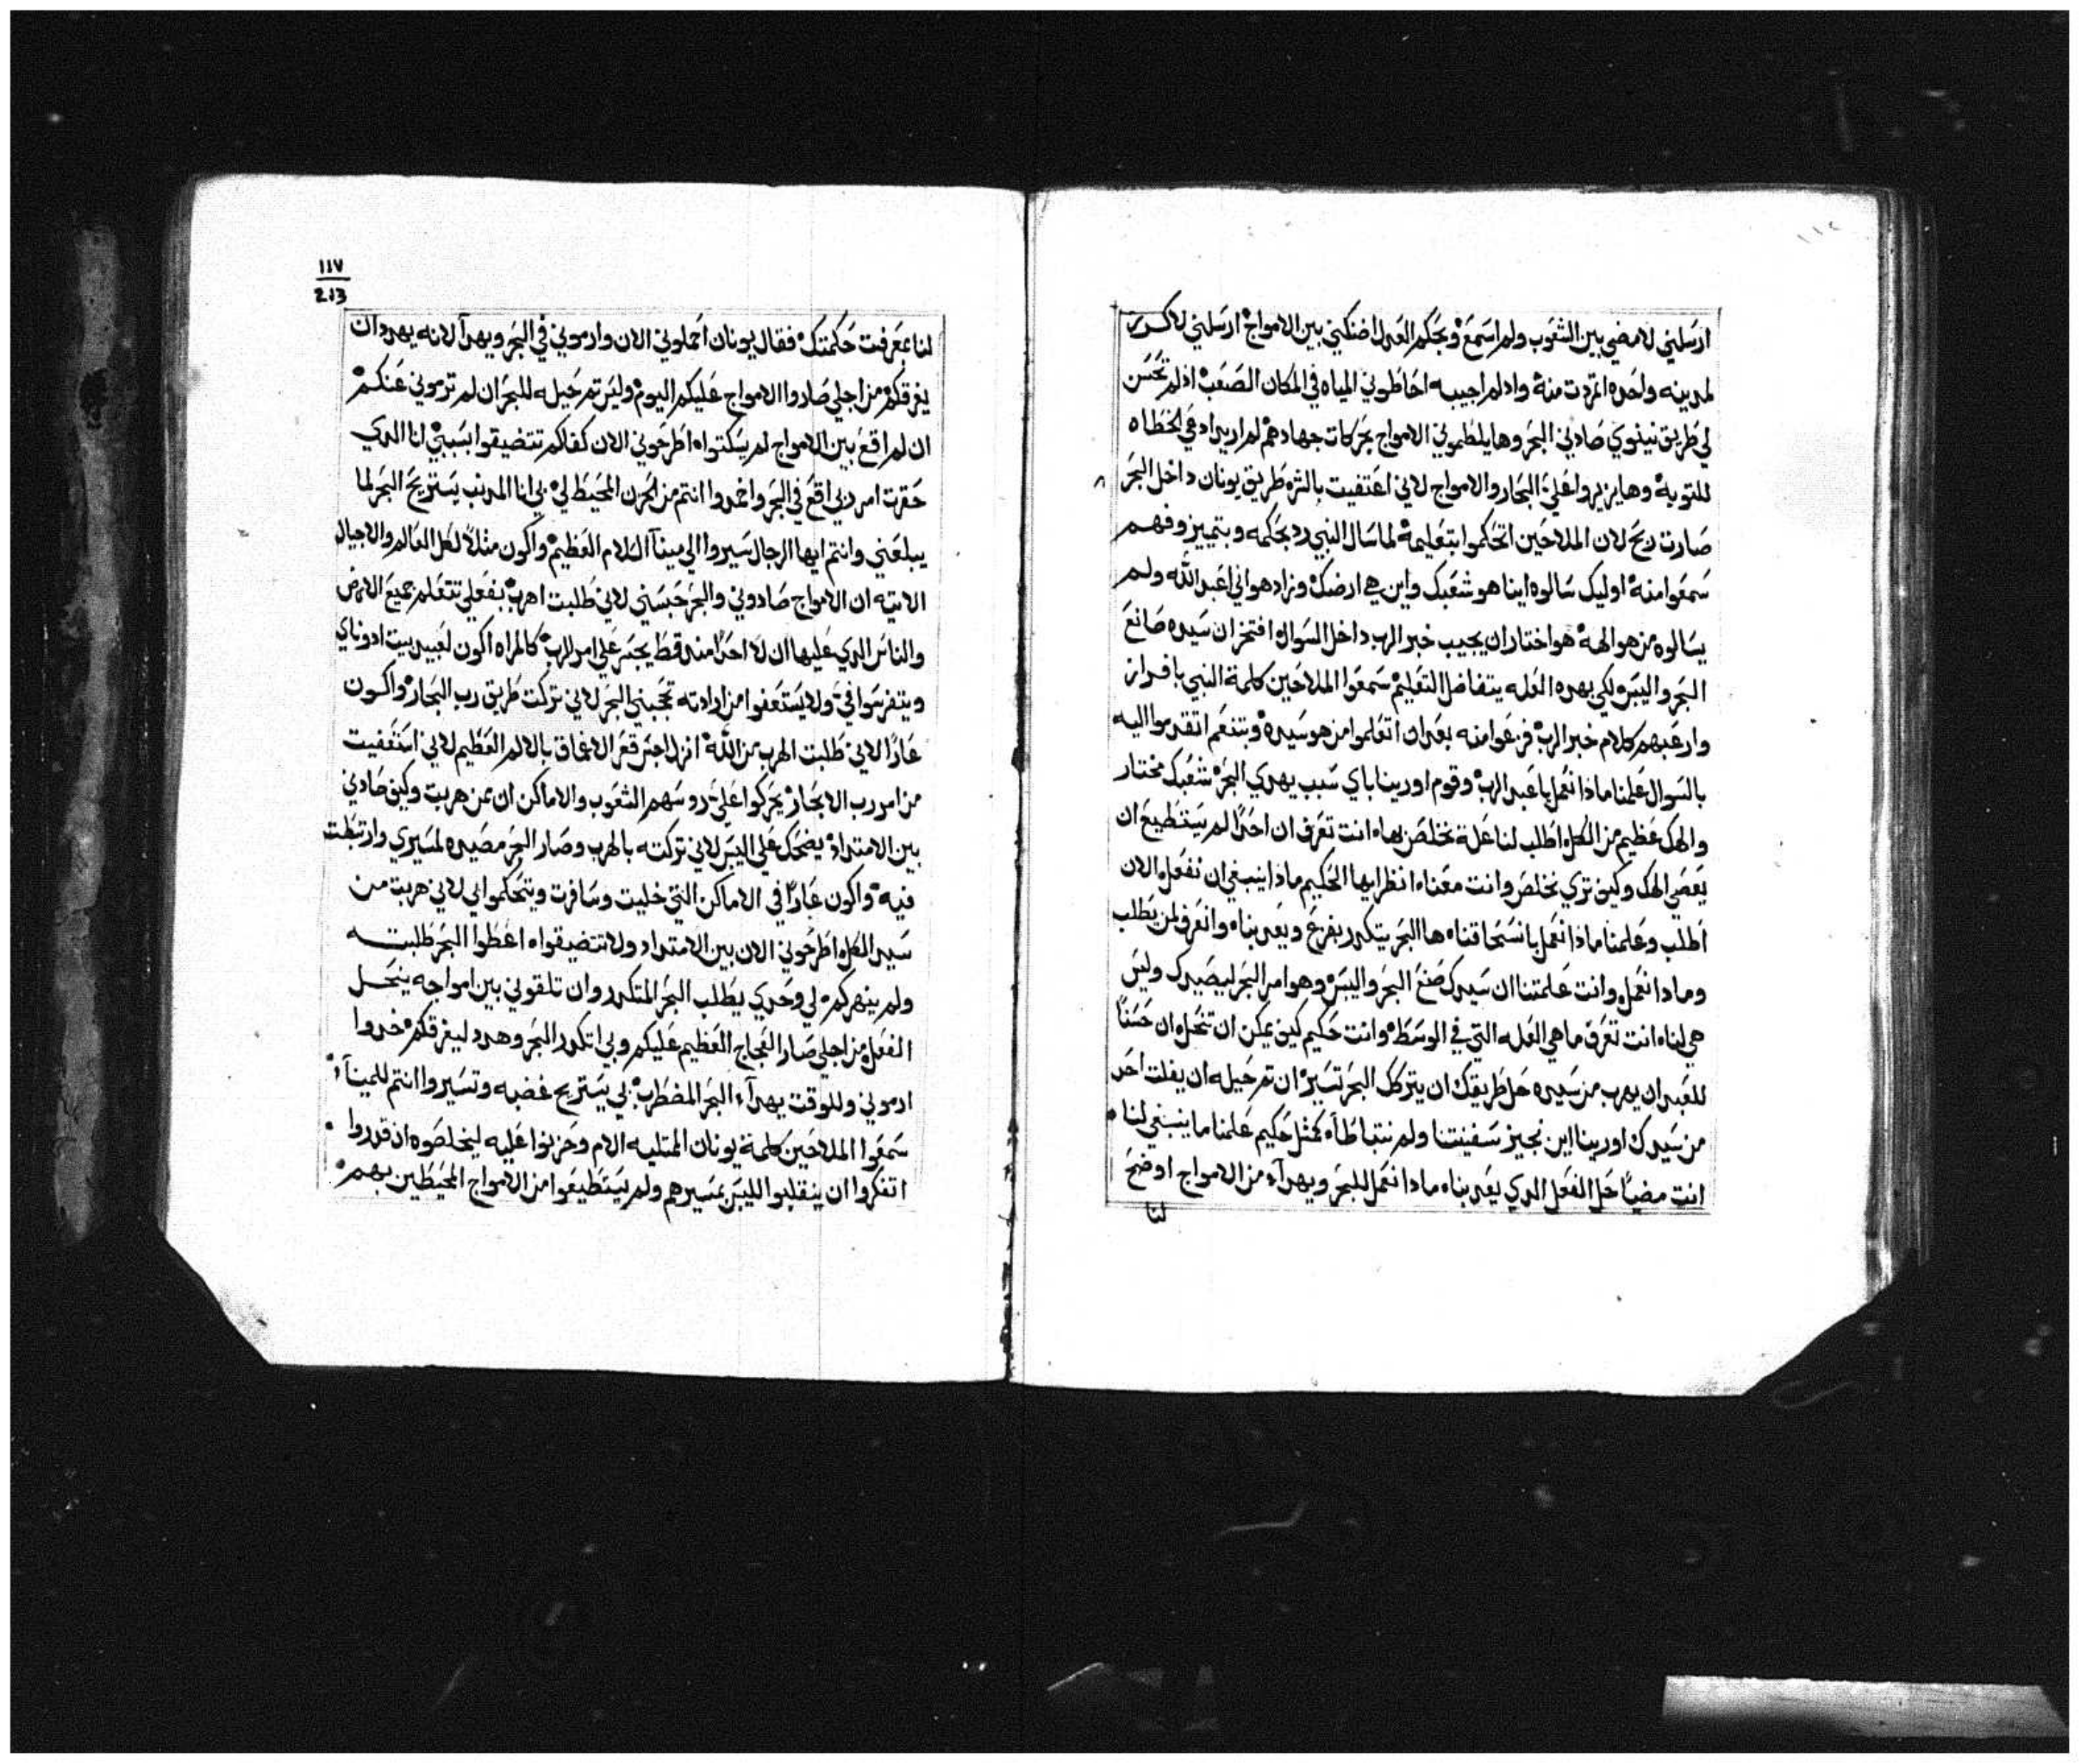 ارسلني لامضي بين الشعوب ولم اسمع وبحكم العدل اضنكني بين الامواج ارسلني لاكرز
لمدينه واحده اتمردت منه واد لم اجيبه احاطوني المياه في المكان الصعب اذ لم تحسن
لي طريق نينوي صادني البحر وها يلطموني الامواج بحركات جهادهم لم اريد ادعي الخطاه
للتوبه وها يزيروا علي البحار والامواج لاني اعتفيت بالثره طريق يونان داخل البحر
صارت ريح لان الملاحين اتحكموا بتعليمه لما سال النبي رد بحكمه وبتمييز وفهم
سمعوا منه اوليك سالوه اينا هو شعبك واين هي ارضك وزاد هو اني اعبد الله ولم
يسالوه من هو الهه هو اختار ان يجيب خبر الرب داخل السوال افتخر ان سيده صانع
البحر واليبس لكي بهده العله يتفاضل التعليم سمعوا الملاحين كلمة النبي بافراز
وارعبهم كلام خبر الرب فزعوا منه بعد ان اتعلموا من هو سيده وبتنغم اتقدموا اليه
بالسوال علمنا مادا نعمل يا عبد الرب وقوم اورينا باي سبب يهدي البحر شعبك مختار
والهك عظيم من الكل اطلب لنا علة نخلص بها انت تعرف ان احدًا لم يستطيع ان
يعصي الهك وكيف تري نخلص وانت معنا انظر ايها الحكيم ماذا ينبغي ان نفعل الان
اطلب وعلمنا ماذا نعمل بانسحاقنا ها البحر يتكدر بفزع ويعدبنا وانعرف لمن يطلب
ومادا نعمل وانت علمتنا ان سيدك صنع البحر واليبس وهو امر البحر ليصيدك وليس
هي لنا انت تعرف ما هي العله التي في الوسط وانت حكيم كيف يمكن ان تنحل ان حسنًا
للعبد ان يهرب من سيده حل طريقك ان يتركك البحر تسير ان تم حيله ان يفلت احد
من سيدك اورينا اين نجيز سفينتنا ولم نتباطا كمثل حكيم علمنا ما ينبغي لنا
انت مضيًا حل الفعل الدي يعدبنا مادا نعمل للبحر ويهدآ من الامواج اوضح
لنا
١١٧
213
لنا بمعرفت حكمتك فقال يونان احملوني الان وارموني في البحر ويهدآ لانه يهدد ان
يغرقكم من اجلي صادوا الامواج عليكم اليوم وليس تم حيله للبحر ان لم ترموني عنكم
ان لم اقع بين الامواج لم يسكتوا اطرحوني الان كفاكم تتضيقوا بسببي انا الدي
حقرت امر ربي اقع في البحر واخمدوا انتم من الحزن المحيط لي بي انا المدنب يستريح البحر لما
يبلعني وانتم ايها الرجال سيروا الي مينآ السلام العظيم واكون مثلاً لكل العالم والاجيال
الاتيه ان الامواج صادوني والبحر حبسني لاني طلبت اهرب بفعلي تتعلم جميع الارض
والناس الدي عليها ان لا احدًا منهم قط يجسر علي امر الرب كالمراه اكون لعبيد بيت ادوناي
ويتفرسوا في ولا يستعفوا من ارادته تحجبني البحر لاني تركت طريق رب البحار واكون
عارًا لاني طلبت الهرب من الله انزل احس قعر الاعماق بالالم العظيم لاني استعفيت
من امر رب الابحار يحركوا علي روسهم الشعوب والاماكن ان بمن هربت وكيف صادني
بين الامتداد يضحك علي اليبس لاني تركته بالهرب وصار البحر مصيده لمسيري وارتبطت
فيه واكون عارًا في الاماكن التي خليت وسافرت ويتحكموا بي لاني هربت من
سيد الكل اطرحوني الان بين الامتداد ولا تتضيقوا اعطوا البحر طلبته
ولم ينهركم لي وحدي يطلب البحر المتكدر وان تلقوني بين امواجه ينحل
الفعل من اجلي صار العجاج العظيم عليكم وبي اتكدر البحر وهدد ليغرقكم خدوا
ارموني وللوقت يهدآ البحر المضطرب بي يستريح غضبه وتسيروا انتم للمينآ
سمعوا الملاحين كلمة يونان الممتليه الام وحزنوا عليه ليخلصوه ان قدروا
اتفكروا ان ينقلبوا لليبس بمسيرهم ولم يستطيعوا من الامواج المحيطين بهم